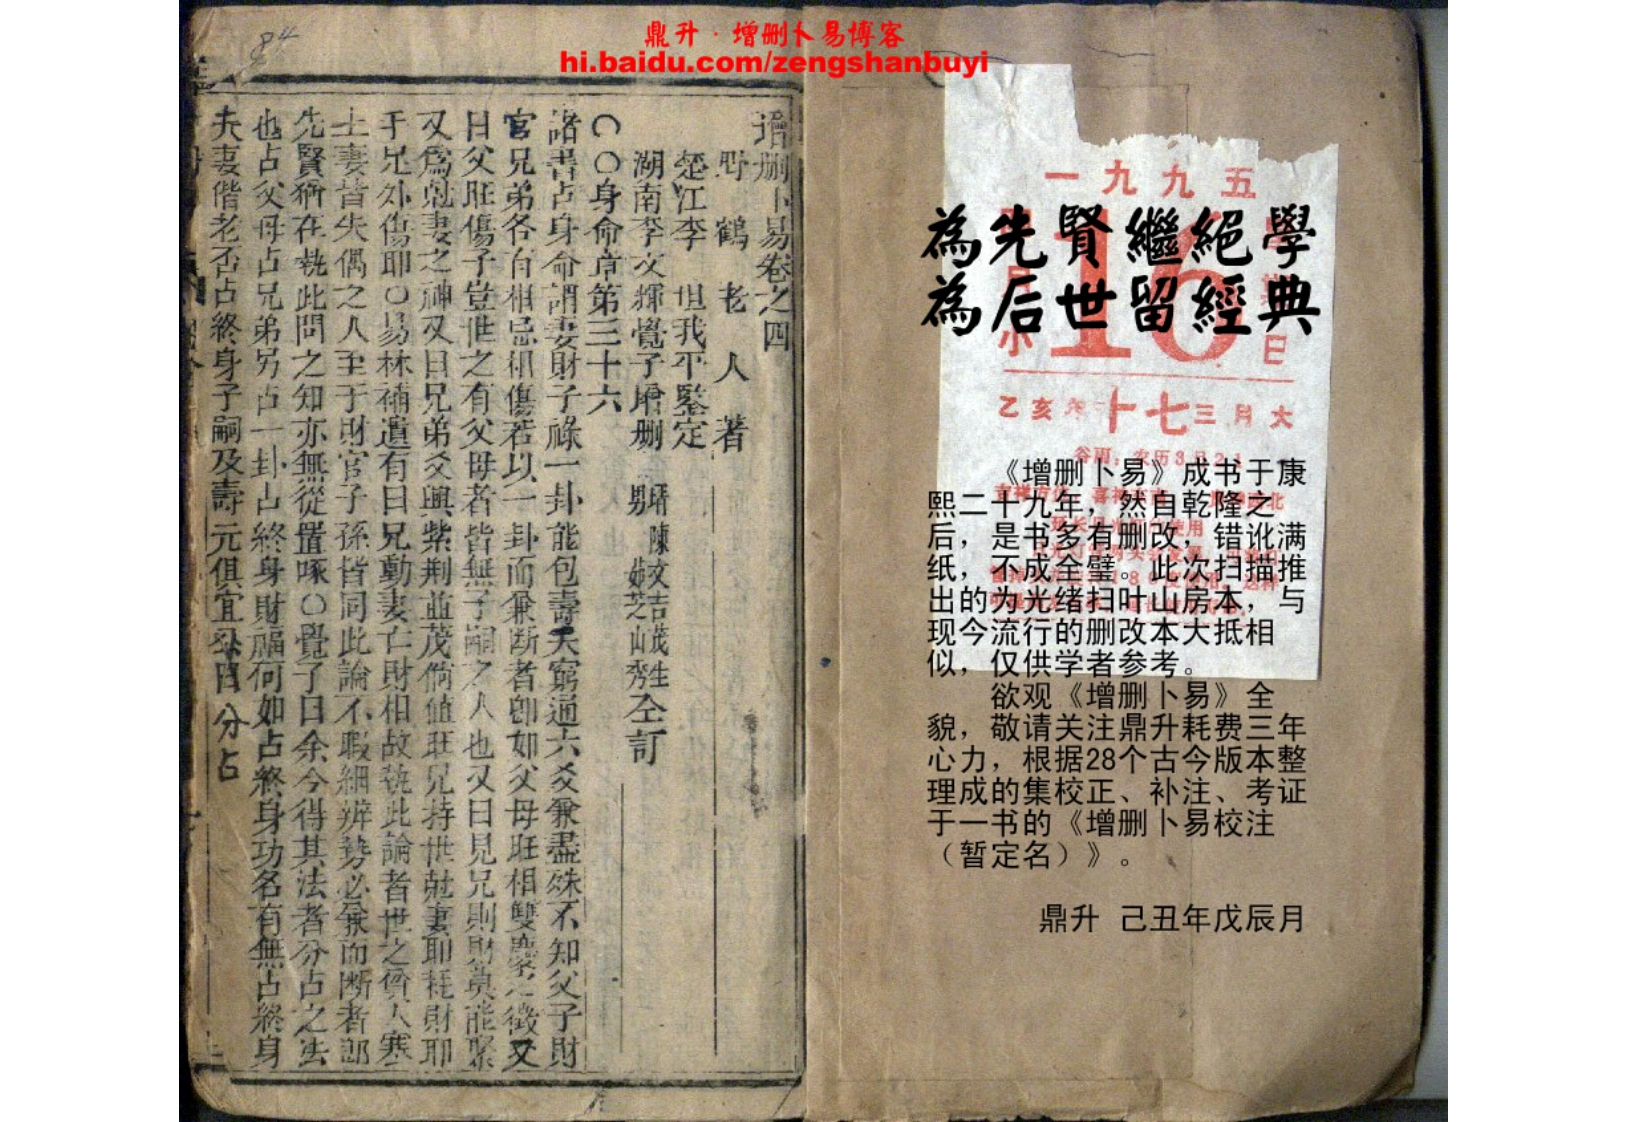 鼎升·增删卜易博客
hi.baidu.com/zengshanbuyi
84
增删卜易卷之四
野鶴老人著
楚江李坦我平鑒定
湖南李文輝覺子增删
壻陳文吉茂生
男 芝山秀
仝訂
〇〇身命章第三十六
諸書占身命謂妻財子祿一卦能包壽夭窮通六爻兼盡殊不知父子財
官兄弟各有相忌相傷若以一卦而兼断者卽如父母旺相雙慶之徵又
曰父旺傷子豈世之有父母者皆無子嗣之人也又曰見兄則財莫能聚
又為尅妻之神又曰兄弟爻興紫荆並茂倘值旺兄持世尅妻耶耗財耶
手足外傷耶〇易林補遺有曰兄動妻亡財相故執此論者世之貧人寒
士妻皆失偶之人至于財官子孫皆同此論不暇細辨势必兼而断者郎
先賢猶在執此問之知亦無從置啄〇覺子曰余今得其法者分占之法
也占父母占兄弟另占一卦占終身財福何如占終身功名有無占終身
夫妻偕老否占終身子嗣及壽元俱宜分占
一九九五
16
小
日
乙亥年
十七
三月大
谷雨：农历3月21
為先賢繼絕學
為后世留經典
《增删卜易》成书于康
熙二十九年，然自乾隆之
后，是书多有删改，错讹满
纸，不成全璧。此次扫描推
出的为光绪扫叶山房本，与
现今流行的删改本大抵相
似，仅供学者参考。
欲观《增删卜易》全
貌，敬请关注鼎升耗费三年
心力，根据28个古今版本整
理成的集校正、补注、考证
于一书的《增删卜易校注
（暂定名）》。
鼎升 己丑年戊辰月